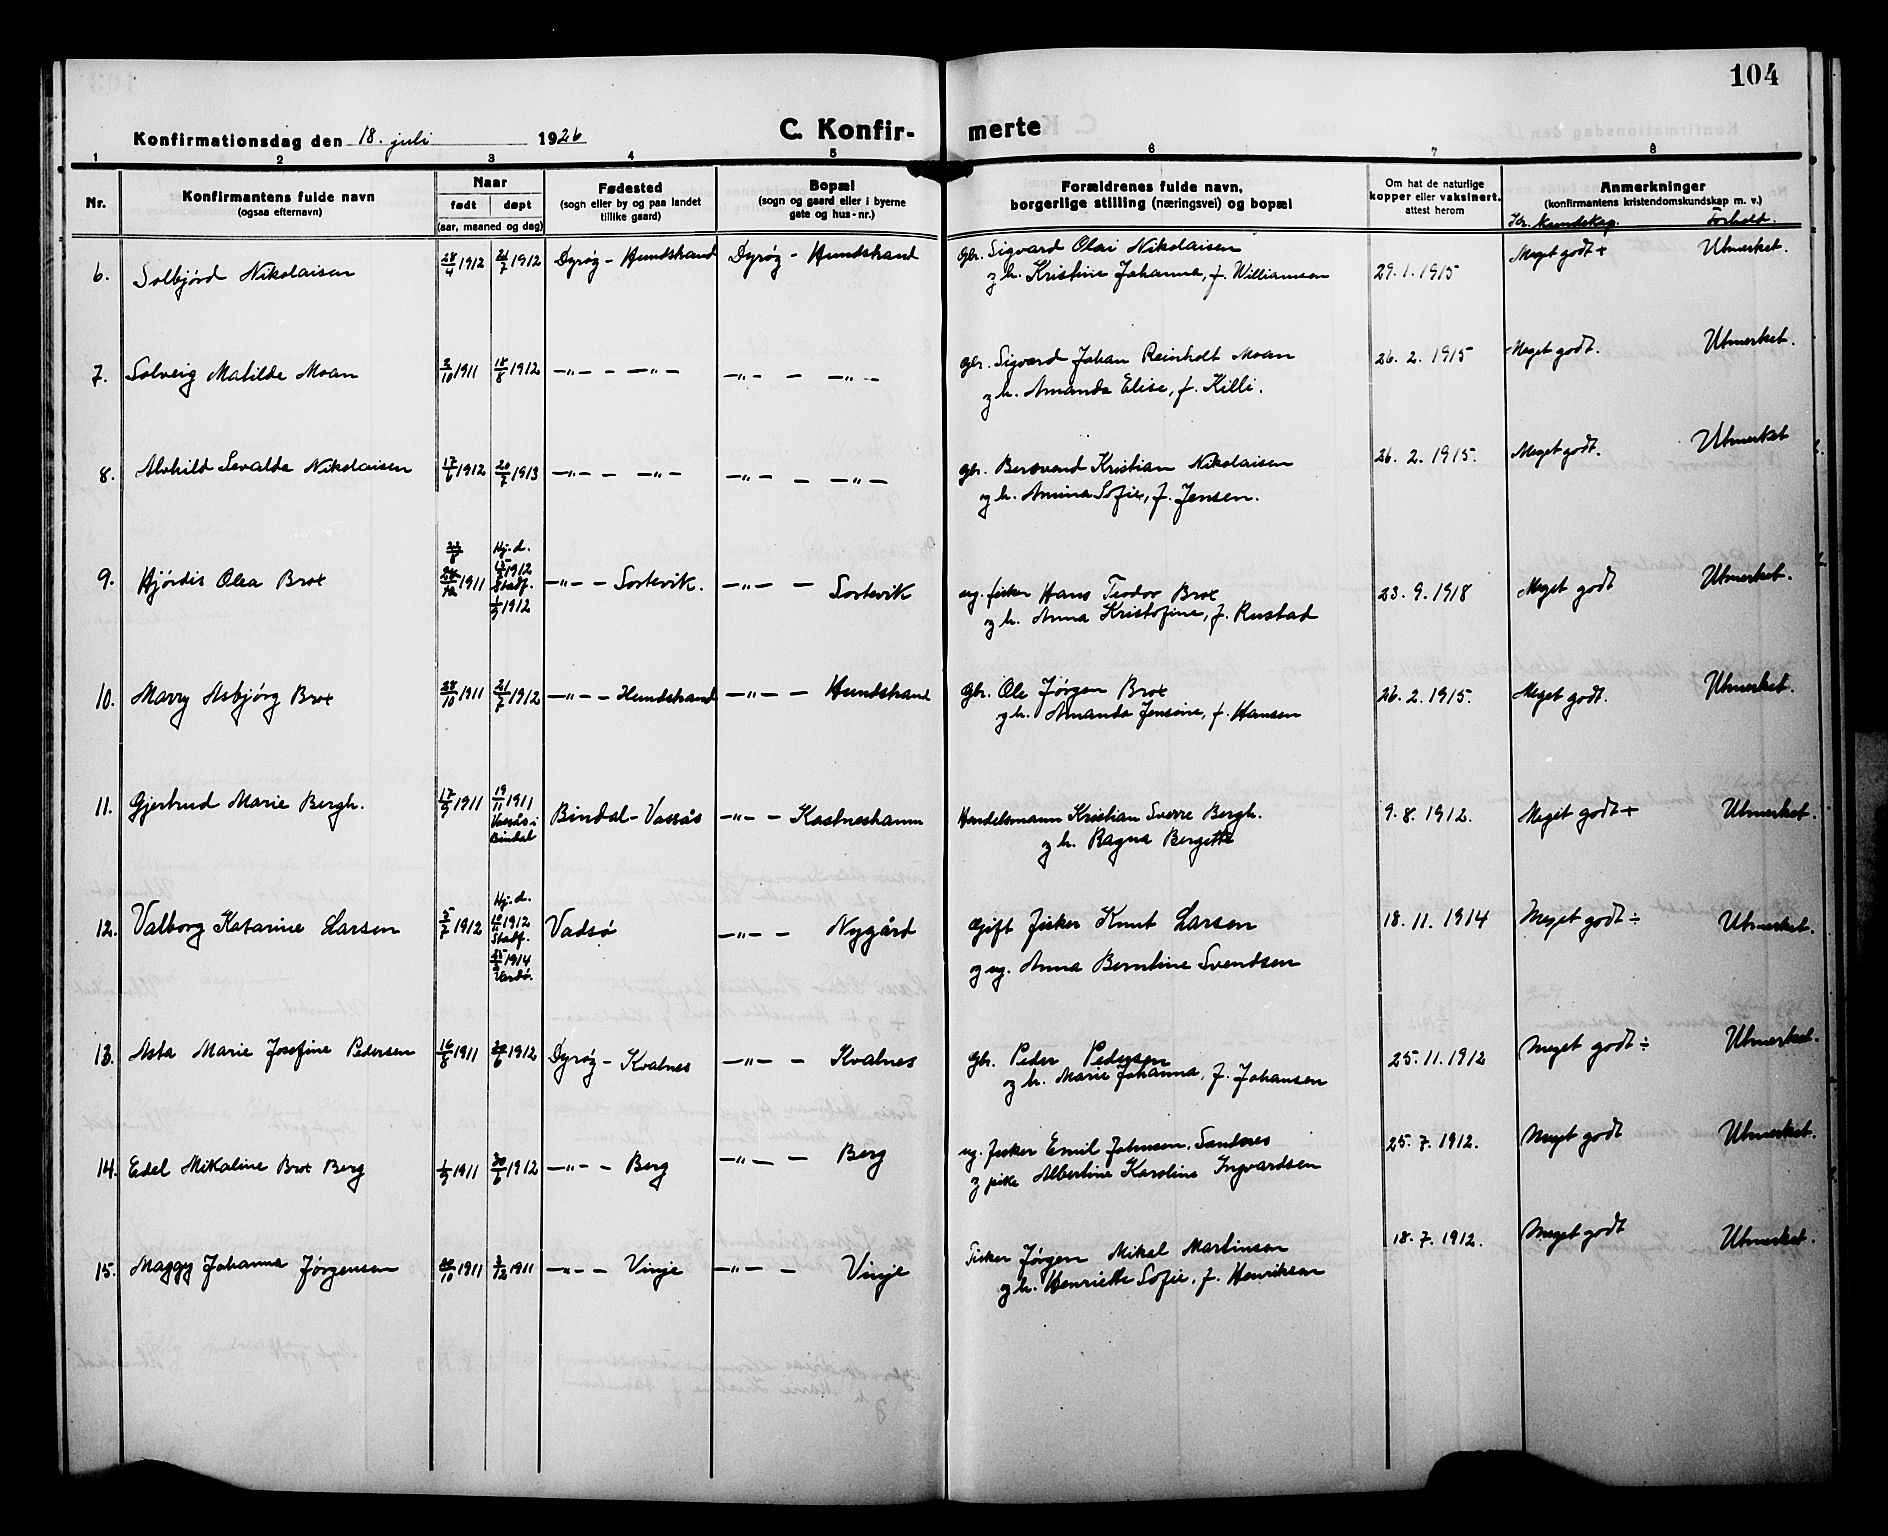 104
C. Konfir- merte
Konfirmationsdag den 18. juli 1926
1 2 3 4 5 6 7 8
Nr.
Konfirmantens fulde navn
(ogsaa efternavn)
Naar
født døpt
(aar, maaned og dag)
Fødested
(sogn eller by og paa landet
tillike gaard)
Bopæl
(sogn og gaard eller i byerne
gate og hus-nr.)
Forældrenes fulde navn,
borgerlige stilling (næringsvei) og bopæl
Om hat de naturlige
kopper eller vaksinert,
attest herom
Anmerkninger
(konfirmantens kristendomskundskap m. v.)
Kr. kundskap. Forhold.
6. Solbjørd Nikolaisen 28/4 1912 21/7 1912 Dyrøy - Hundstrand Dyrøy - Hundstrand gbr. Sigvard Olai Nikolaisen 29.1.1915 Meget godt + Utmerket.
og h. Kristine Johanna, f. Williamsen
7. Solveig Matilde Moan 2/10 1911 18/8 1912 —"— — —"— —"— — —"— gbr. Sigvard Johan Reinholt Moan 26.2.1915 Meget godt. Utmerket.
og h. Amanda Elise, f. Killi.
8. Alvhild Sevalda Nikolaisen 17/6 1912 20/7 1913 —"— — —"— —"— — —"— gbr. Bersvend Kristian Nikolaisen 26.2.1915. Meget godt. Utmerket
og h. Amina Sofie, f. Jensen.
9. Hjørdis Olea Brox 1911 Hj. d.
1912
Stadf.
1/9 1912 —"— — Sortevik. —"— — Sortevik ug. fisker Hans Teodor Brox 23.9.1918 Meget godt Utmerket.
og h. Anna Kristofine, f. Rustad
10. Marry Asbjørg Brox 28/10 1911 21/7 1912 —"— — Hundstrand —"— — Hundstrand gbr. Ole Jørgen Brox 26.2.1915. Meget godt. Utmerket.
og h. Amanda Jensine, f. Hansen
11. Gjertrud Marie Bergh. 17/9 1911 19/11 1911
Vassås i
Bindal Bindal - Vassås —"— — Kastneshamn Handelsmann Kristian Sverre Bergh. 9.8.1912. Meget godt + Utmerket.
og h. Ragna Bergette
12. Valborg Katarine Larsen 5/7 1912 Hj. d.
1912
Stadf.
1914
Vardø. Vadsø —"— — Nygård Gift fisker Knut Larsen 18.11.1914 Meget godt ÷ Utmerket.
og ug. Anna Berntine Svendsen
13. Asta Marie Josefine Pedersen 16/8 1911 30/6 1912 Dyrøy - Kvalnes —"— — Kvalnes gbr. Peder Pedersen 25.11.1912 Meget godt ÷ Utmerket.
og h. Marie Johanna, f. Johansen
14. Edel Mikaline Brox Berg 1/9 1911 30/6 1912 —"— — Berg —"— — Berg ug. fisker Emil Johnsen. Sandnes 25.7.1912. Meget godt Utmerket.
og pike Albertine Karoline Ingvardsen
15. Maggy Johanna Jørgensen 20/10 1911 3/12 1911 —"— — Vinje —"— — Vinje Fisker Jørgen Mikal Martinsen 18.7.1912. Meget godt Utmerket.
og h. Henriette Sofie, f. Henriksen